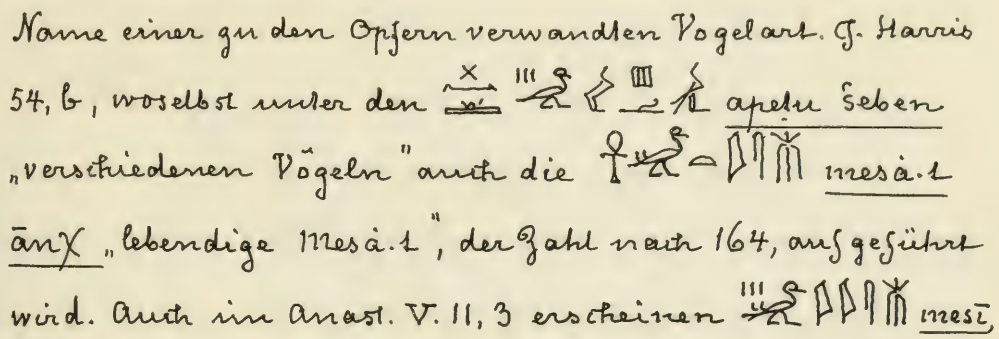 Name einer zu den Opfern verwandten Vogelart. Cf. Harris
54, b, woselbst unter den apeṭu šeben
„verschiedenen Vögeln" auch die mesȧ.t
ānχ „lebendige mesȧ.t", der Zahl nach 164, aufgeführt
wird. Auch im Anast. V. 11, 3 erscheinen mesī,